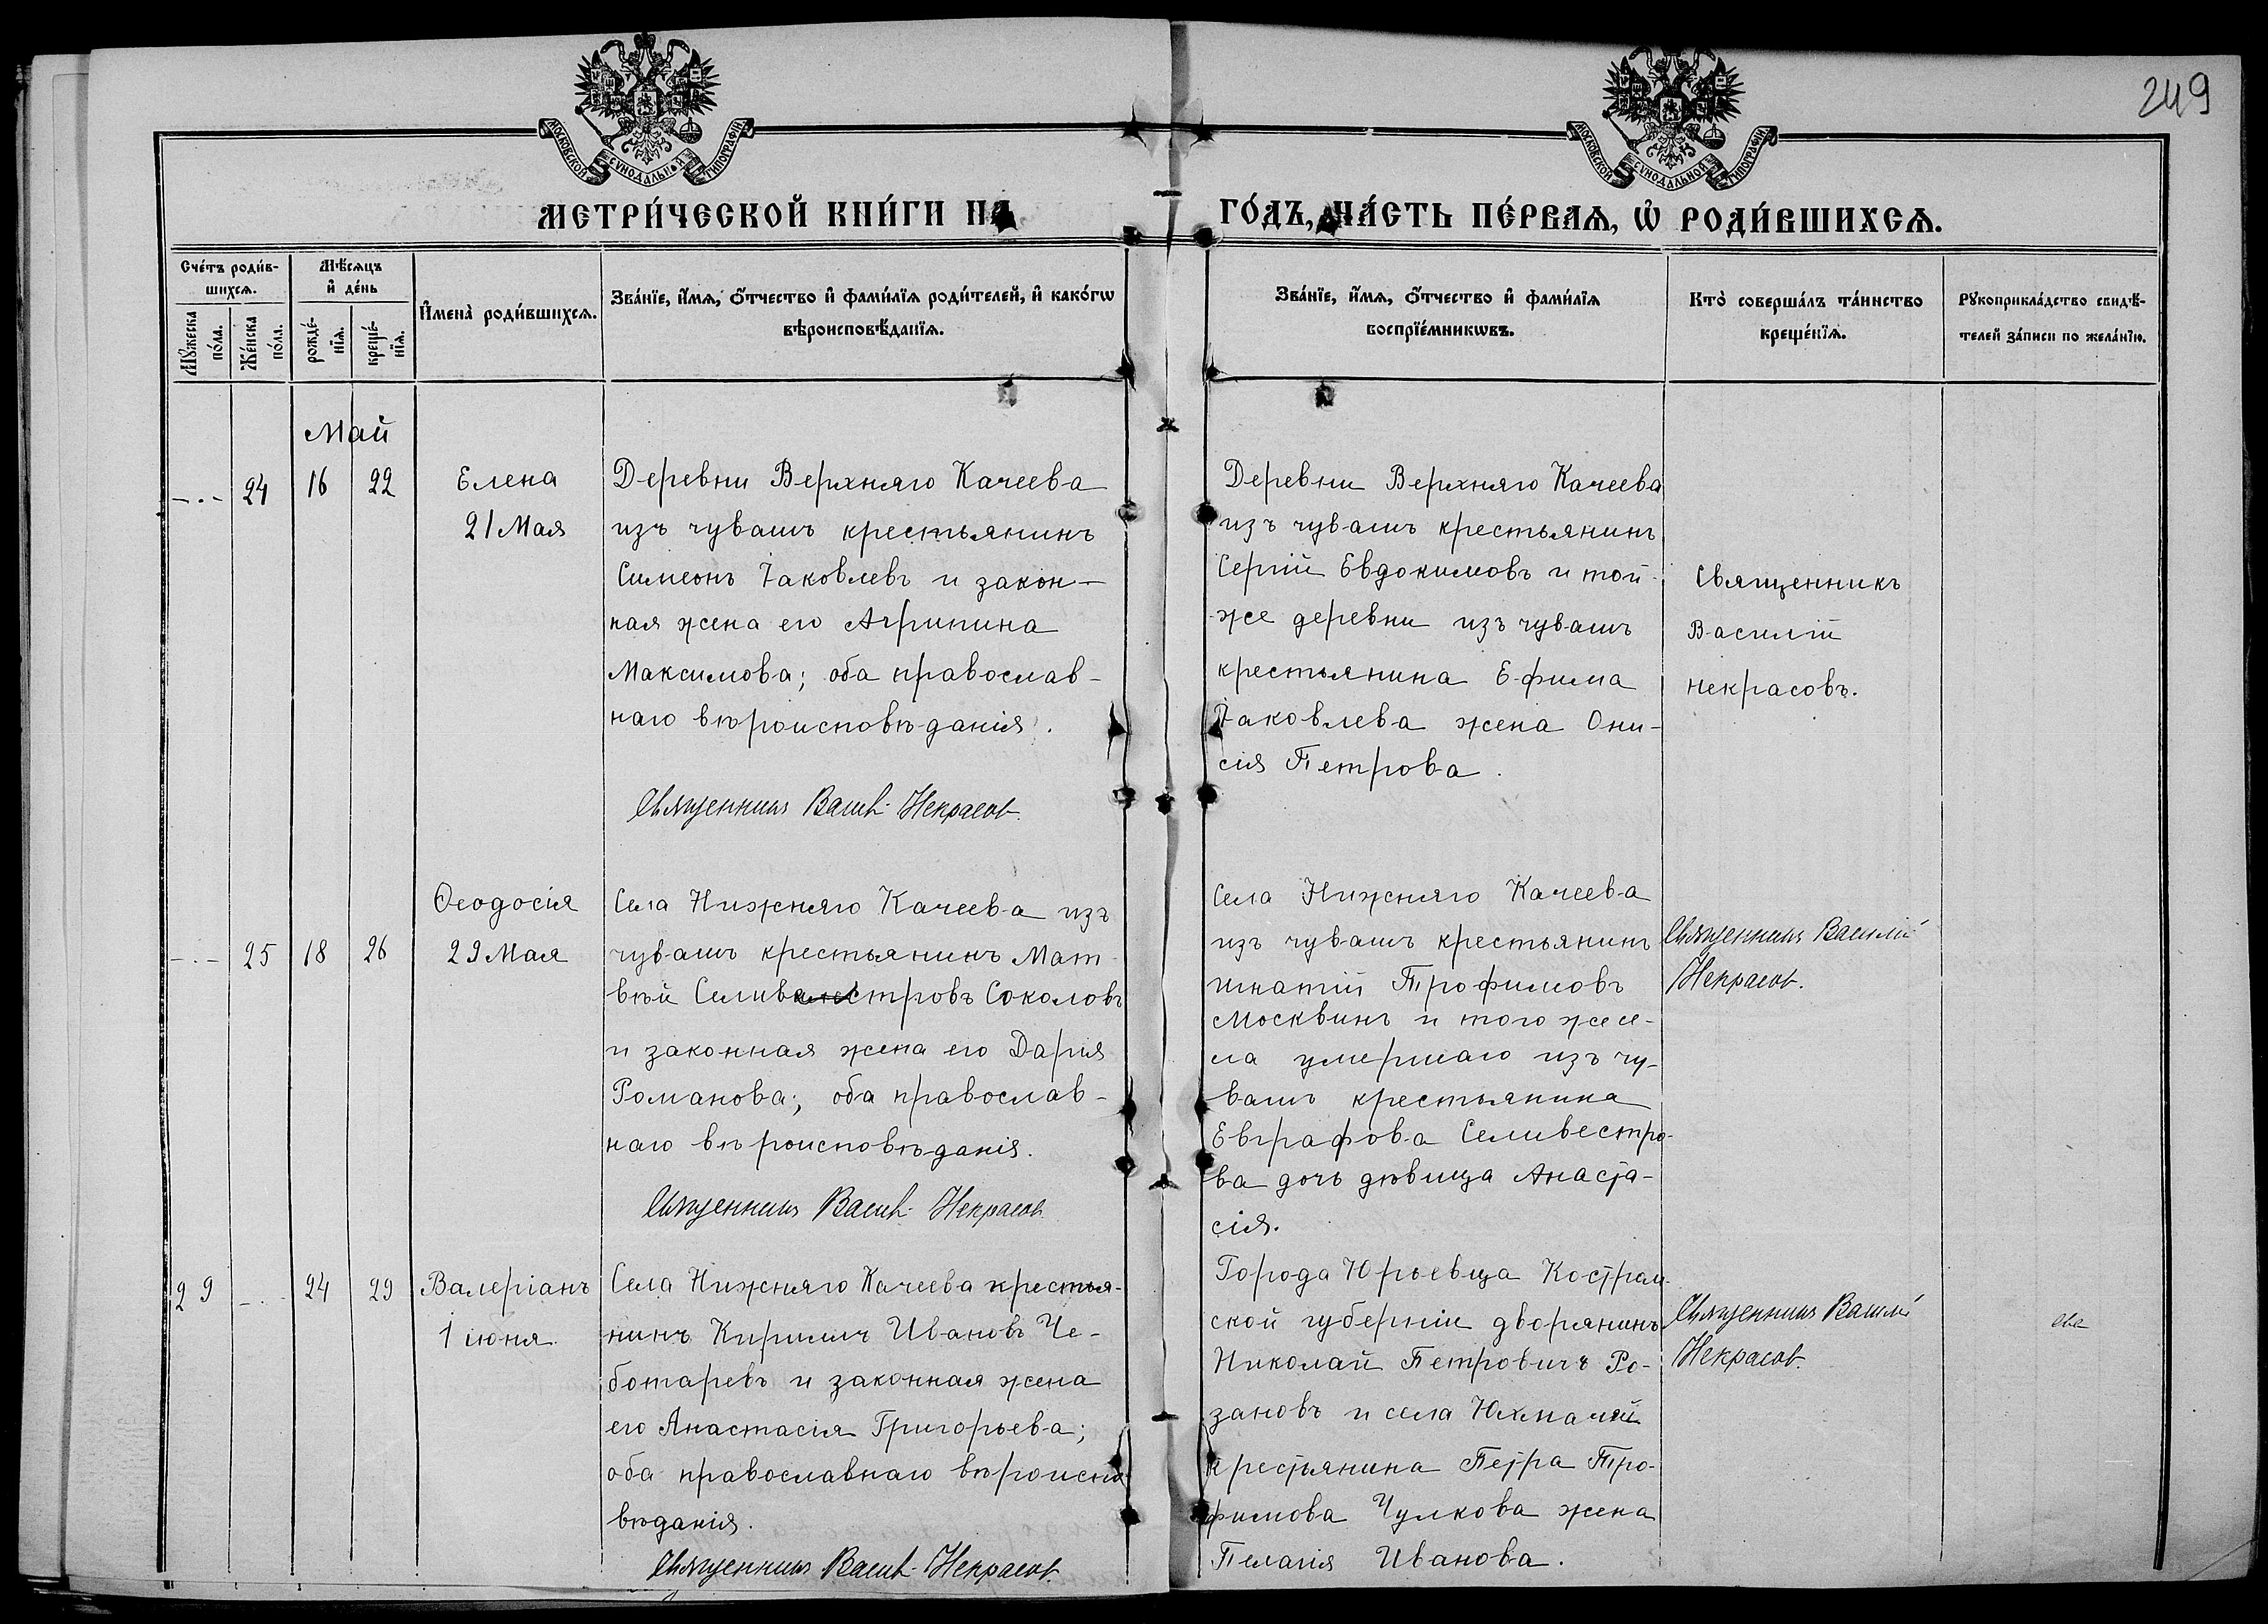 249
МОСКОВСКОЙ СѴНОДАЛЬНОЙ ТИПОГРАФІИ
МОСКОВСКОЙ СѴНОДАЛЬНОЙ ТИПОГРАФІИ
МЕТРИ́ЧЕСКОЙ КНИ́ГИ НА
ГО́ДЪ, ЧА́СТЬ ПЕ́РВАѦ, Ѡ҆ РОДИ́ВШИХСѦ.
Сче́тъ роди́в-
шихсѧ.
Мꙋ́жеска
по́ла.
Же́нска
по́ла.
Мѣ́сѧцъ
и҆ де́нь
рожде́-
нїѧ.
креще́-
нїѧ.
И҆мена̀ роди́вшихсѧ.
Зва́нїе, и҆́мѧ, ѻ҆́тчество и҆ фами́лїѧ роди́телей, и҆ како́гѡ
вѣроисповѣ́данїѧ.
Зва́нїе, и҆́мѧ, ѻ҆́тчество и҆ фами́лїѧ
воспрїе́мникѡвъ.
Кто̀ соверша́лъ та́инство
креще́нїѧ.
Рꙋкоприкла́дство свидѣ́-
телей за́писи по жела́нїю.
Май
-.- 24 16 22
Елена
21 Мая
Деревни Верхняго Качеева
изъ чувашъ крестьянинъ
Симеонъ Іаковлевъ и закон-
ная жена его Агрипина
Максимова; оба православ-
наго вѣроисповѣданія.
Священникъ Васил. Некрасов.
Деревни Верхняго Качеева
изъ чувашъ крестьянинъ
Сергій Евдокимовъ и той-
же деревни изъ чувашъ
крестьянина Ефима
Іаковлева жена Они-
сія Петрова.
Священникъ
Василій
Некрасовъ.
-.- 25 18 26
Ѳеодосія
29 Мая
Села Нижняго Качеева изъ
чувашъ крестьянинъ Мат-
вѣй Селивестровъ Соколовъ
и законная жена его Дарія
Романова; оба православ-
наго вѣроисповѣданія.
Священникъ Васил. Некрасов.
Села Нижняго Качеева
изъ чувашъ крестьянинъ
Игнатій Трофимовъ
Москвинъ и того же се-
ла умершаго изъ чу-
вашъ крестьянина
Евграфова Селивестро-
ва дочь дѣвица Анаста-
сія.
Священникъ Василій
Некрасов.
29 -.- 24 29
Валеріанъ
1 іюня
Села Нижняго Качеева крестья-
нинъ Кириллъ Ивановъ Че-
ботаревъ и законная жена
его Анастасія Григорьева;
оба православнаго вѣроиспо-
вѣданія.
Священникъ Васил. Некрасов.
Города Юрьевца Костром-
ской губерніи дворянинъ
Николай Петровичъ Ро-
зановъ и села Юхмачей
крестьянина Петра Тро-
фимова Чулкова жена
Пелагія Иванова.
Священникъ Василій
Некрасов.